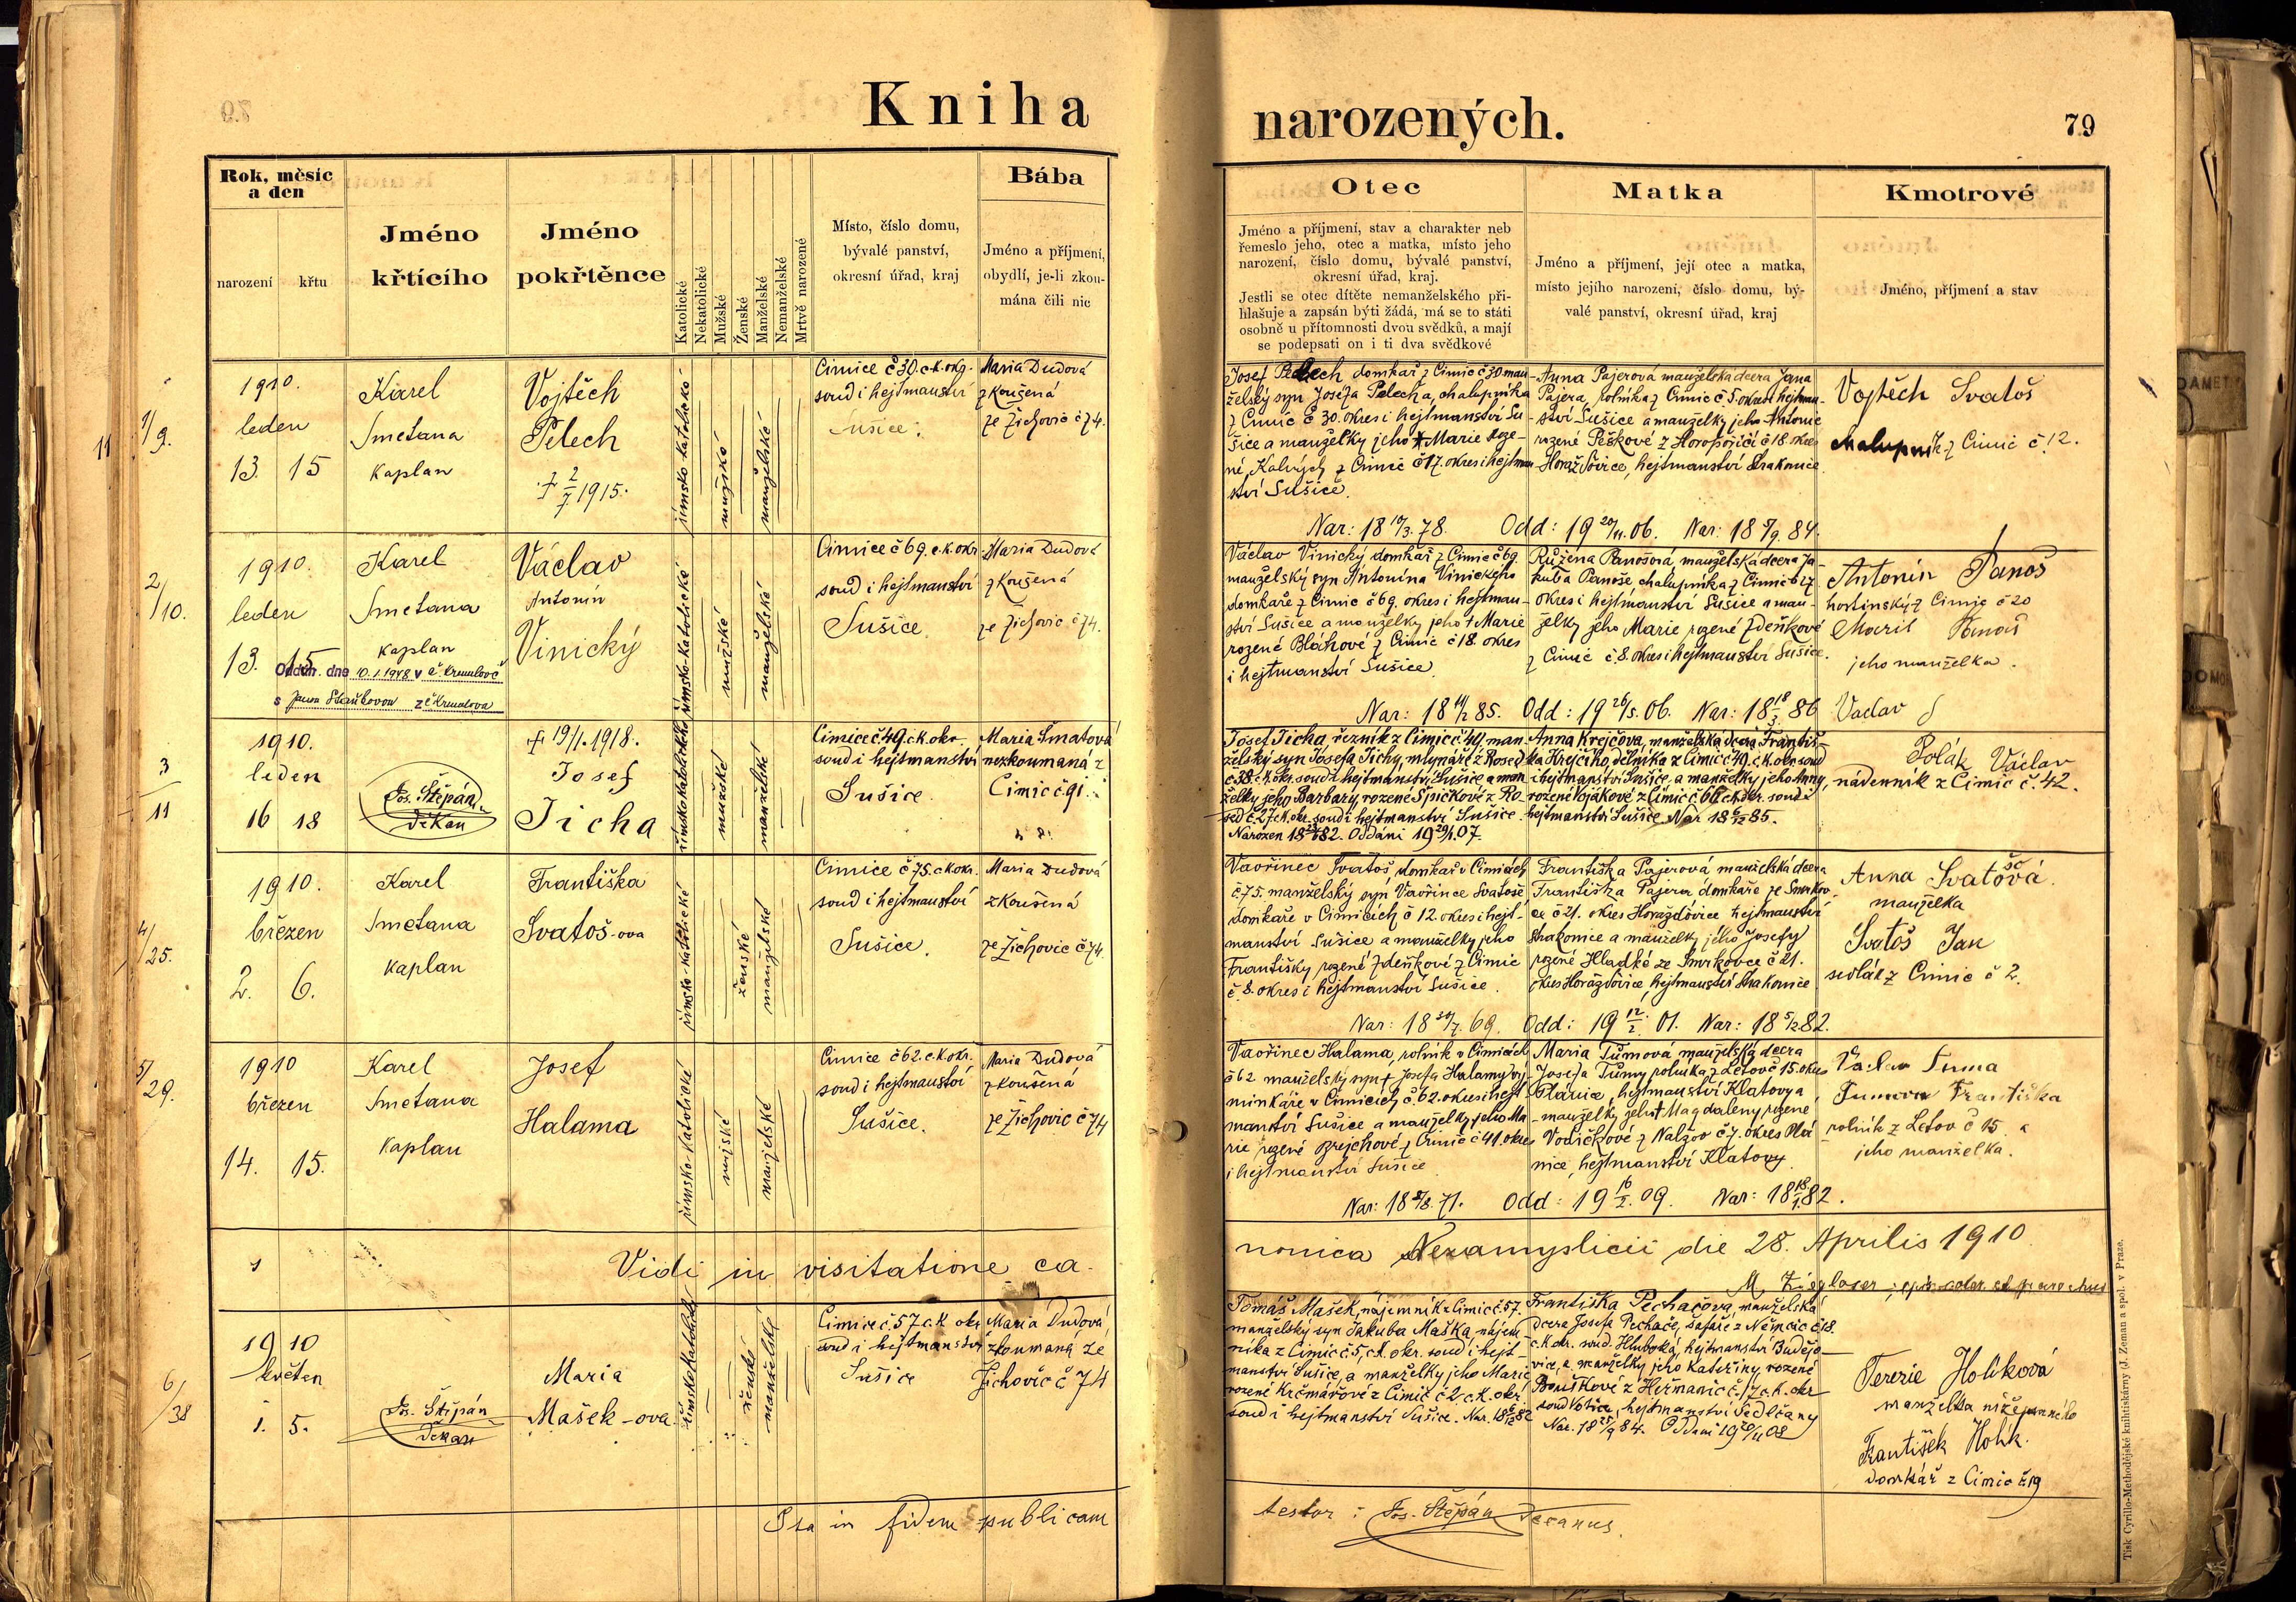 Kniha
narozených.
79
Rok, měsíc
a den
narození
křtu
Jméno
křtícího
Jméno
pokřtěnce
Katolické
Nekatolické
Mužské
Ženské
Manželské
Nemanželské
Mrtvě narozené
Místo, číslo domu,
bývalé panství,
okresní úřad, kraj
Bába
Jméno a příjmení,
obydlí, je-li zkou-
mána čili nic
Otec
Jméno a příjmení, stav a charakter neb
řemeslo jeho, otec a matka, místo jeho
narození, číslo domu, bývalé panství,
okresní úřad, kraj.
Jestli se otec dítěte nemanželského při-
hlašuje a zapsán býti žádá, má se to státi
osobně u přítomnosti dvou svědků, a mají
se podepsati on i ti dva svědkové
Matka
Jméno a příjmení, její otec a matka,
místo jejího narození, číslo domu, bý-
valé panství, okresní úřad, kraj
Kmotrové
Jméno, příjmení a stav
11
1/9.
1910.
leden
13. 15
Karel
Smetana
kaplan
Vojtěch
Pelech
† 2/7 1915.
římsko katolické
mužské
manželské
Cimice č 30. c.k. okr.
soud i hejtmanství
Sušice.
Maria Dudová
zkoušená
ze Žichovic č 74.
Josef Pelech domkař z Cimic č 30 man-
želský syn Josefa Pelecha, chalupníka
z Cimic č 30. okres i hejtmanství Su-
šice a manželky jeho † Marie roze-
né Kalných z Cimic č 17. okres i hejtman
ství Sušice.
Anna Pajerová manželská dcera Jana
Pajera, rolníka z Cimic č 5. okres i hejtman-
ství Sušice a manželky jeho Antonie
rozené Peškové z Horopořičí č 18 okres
Horažďovice, hejtmanství Strakonice
Nar: 18 19/3. 78. Odd: 19 20/11. 06. Nar: 18 5/9. 84.
Vojtěch Svatoš
chalupník z Cimic č 12.
2/10.
1910.
leden
13. 15.
Karel
Smetana
kaplan
Oddán. dne 10.1.1948 v Č. Krumlově
s z Č Krumlova
Václav
Antonín
Vinický
římsko-katolické
mužské
manželské
Cimice č 69. c.k. okr.
soud i hejtmanství
Sušice.
Maria Dudová
zkoušená
ze Žichovic č 74.
Václav Vinický domkař z Cimic č 69.
manželský syn Antonína Vinického
domkaře z Cimic č 69. okres i hejtman-
ství Sušice a manželky jeho † Marie
rozené Bláhové z Cimic č 18. okres
i hejtmanství Sušice.
Růžena Panošová, manželská dcera Ja-
kuba Panoše chalupníka z Cimic č 27
okres i hejtmanství Sušice a man-
želky jeho Marie rozené Zdeňkové
z Cimic č 8. okres i hejtmanství Sušice.
Nar: 18 14/2 85. Odd: 19 26/5. 06. Nar: 18 18/3 86
Antonín Panoš
hostinský z Cimic č 20
Marie Panoš
jeho manželka.
Vaclav
3/11
1910.
leden
16 18
Jos. Štěpán
děkan
† 19/1. 1918.
Josef
Ticha
římskokatolického
mužské
manželské
Cimice č. 49. c.k. okr.
soud i hejtmanství
Sušice.
Maria Šmatová
nezkoumaná z
Cimic č 91.
Josef Ticha, řezník z Cimic č 49. man-
želský syn Josefa Tichy, mlynáře z Rosed
č 38 c.k. okr. soud i hejtmanství Sušice a man-
želky jeho Barbary, rozené Špičkové z Ro-
sed č. 27 c.k. okr. soud i hejtmanství Sušice.
Anna Krejčova, manželská dcera Františ-
ka Krejčího, dělníka z Cimic č 49. c.k. okr. soud
i hejtmanství Sušice, a manželky jeho Anny,
rozené Vojákové z Cimic č 66 c.k. okr. soud i
hejtmanství Sušice. Nar 18 85.
Oddáni 19 29/1. 07.
Polák Václav
nádenník z Cimic č. 42.
4/25.
1910.
březen
2. 6.
Karel
Smetana
kaplan
Františka
Svatoš-ova
římsko-katolické
ženské
manželské
Cimice č 75. c.k. okr.
soud i hejtmanství
Sušice.
Maria Dudová
zkoušená
ze Žichovic č 74.
Vavřinec Svatoš, domkař v Cimicích
č. 75 manželský syn Vavřince Svatoše
domkaře v Cimicích č 12. okres i hejt-
manství Sušice a manželky jeho
Františky rozené Zdeňkové z Cimic
č. 8. okres i hejtmanství Sušice.
Františka Pajerová manželská dcera
Františka Pajera domkaře ze Smrkov-
ce č 21. okres Horažďovice hejtmanství
Strakonice a manželky jeho Josefy
rozené Hladké ze Smrkovce č 21.
okres Horažďovice, hejtmanství Strakonice
Nar: 18 30/7. 69. Odd: 19 12/2. 01. Nar: 18 5/2 82.
Anna Svatošová.
manželka
Svatoš Jan
sedlák z Cimic č 2.
5/29.
1910
březen
14. 15.
Karel
Smetana
kaplan
Josef
Halama
římsko-katolické
mužské
manželské
Cimice č 62. c.k. okr.
soud i hejtmanství
Sušice.
Maria Dudová
zkoušená
ze Žichovic č 74
Vavřinec Halama, rolník v Cimicích
č 62 manželský syn † Josefa Halamy vý-
minkáře v Cimicích č. 62. okres i hejt-
manství Sušice a manželky jeho Ma-
rie rozené Brejchové z Cimic č 41. okres
i hejtmanství Sušice.
Maria Tůmová manželská dcera
Josefa Tůmy rolníka z Letov č 15. okres
Plánice, hejtmanství Klatovy a
manželky jeho † Magdaleny rozené
Vodičkové z Nalžov č 7. okres Plá-
nice, hejtmanství Klatovy.
Nar: 18 5/8. 71. Odd: 19 16/2. 09. Nar: 18 18/1. 82.
Václav Tuma
Tumova Františka
rolník z Letov č 15. a
jeho manželka.
Vidi in visitatione ca-
nonica Nezamyslicii die 28. Aprilis 1910.
6/38
1910
květen
1. 5.
Jos. Štěpán
Děkan
Maria
Mašek-ova
římskokatolické
ženské
manželské
Cimice č. 57 c.k. okr
soud i hejtmanství
Sušice
Maria Dudová
zkoumaná ze
Žichovic č 74
Tomáš Mašek, nájemník z Cimic č. 57.
manželský syn Jakuba Maška, nájem-
níka z Cimic č 5, c.k. okr. soud i hejt-
manství Sušice, a manželky jeho Marie
rozené Krčmářové z Cimic č 2 c.k. okr.
soud i hejtmanství Sušice.
Františka Pechačova, manželská
dcera Josefa Pechače, šafáře z Němčic č 18.
c.k. okr. soud. Hluboká, hejtmanství Budějo-
vice, a manželky jeho Kateřiny rozené
Bouškové z Heřmanic č. 17 c.k. okr
soud Votice, hejtmanství Sedlčany
Nar. 18 25/9 84. Oddáni 19 20/11 08
Terezie Holíková
manželka níže psaného
František Holík.
domkář z Cimic č. 19
Ita in fidem publicam
testor: Jos. Štěpán Decanus.
Tisk Cyrillo-Methodějské knihtiskárny (J. Zeman a spol. v Praze.